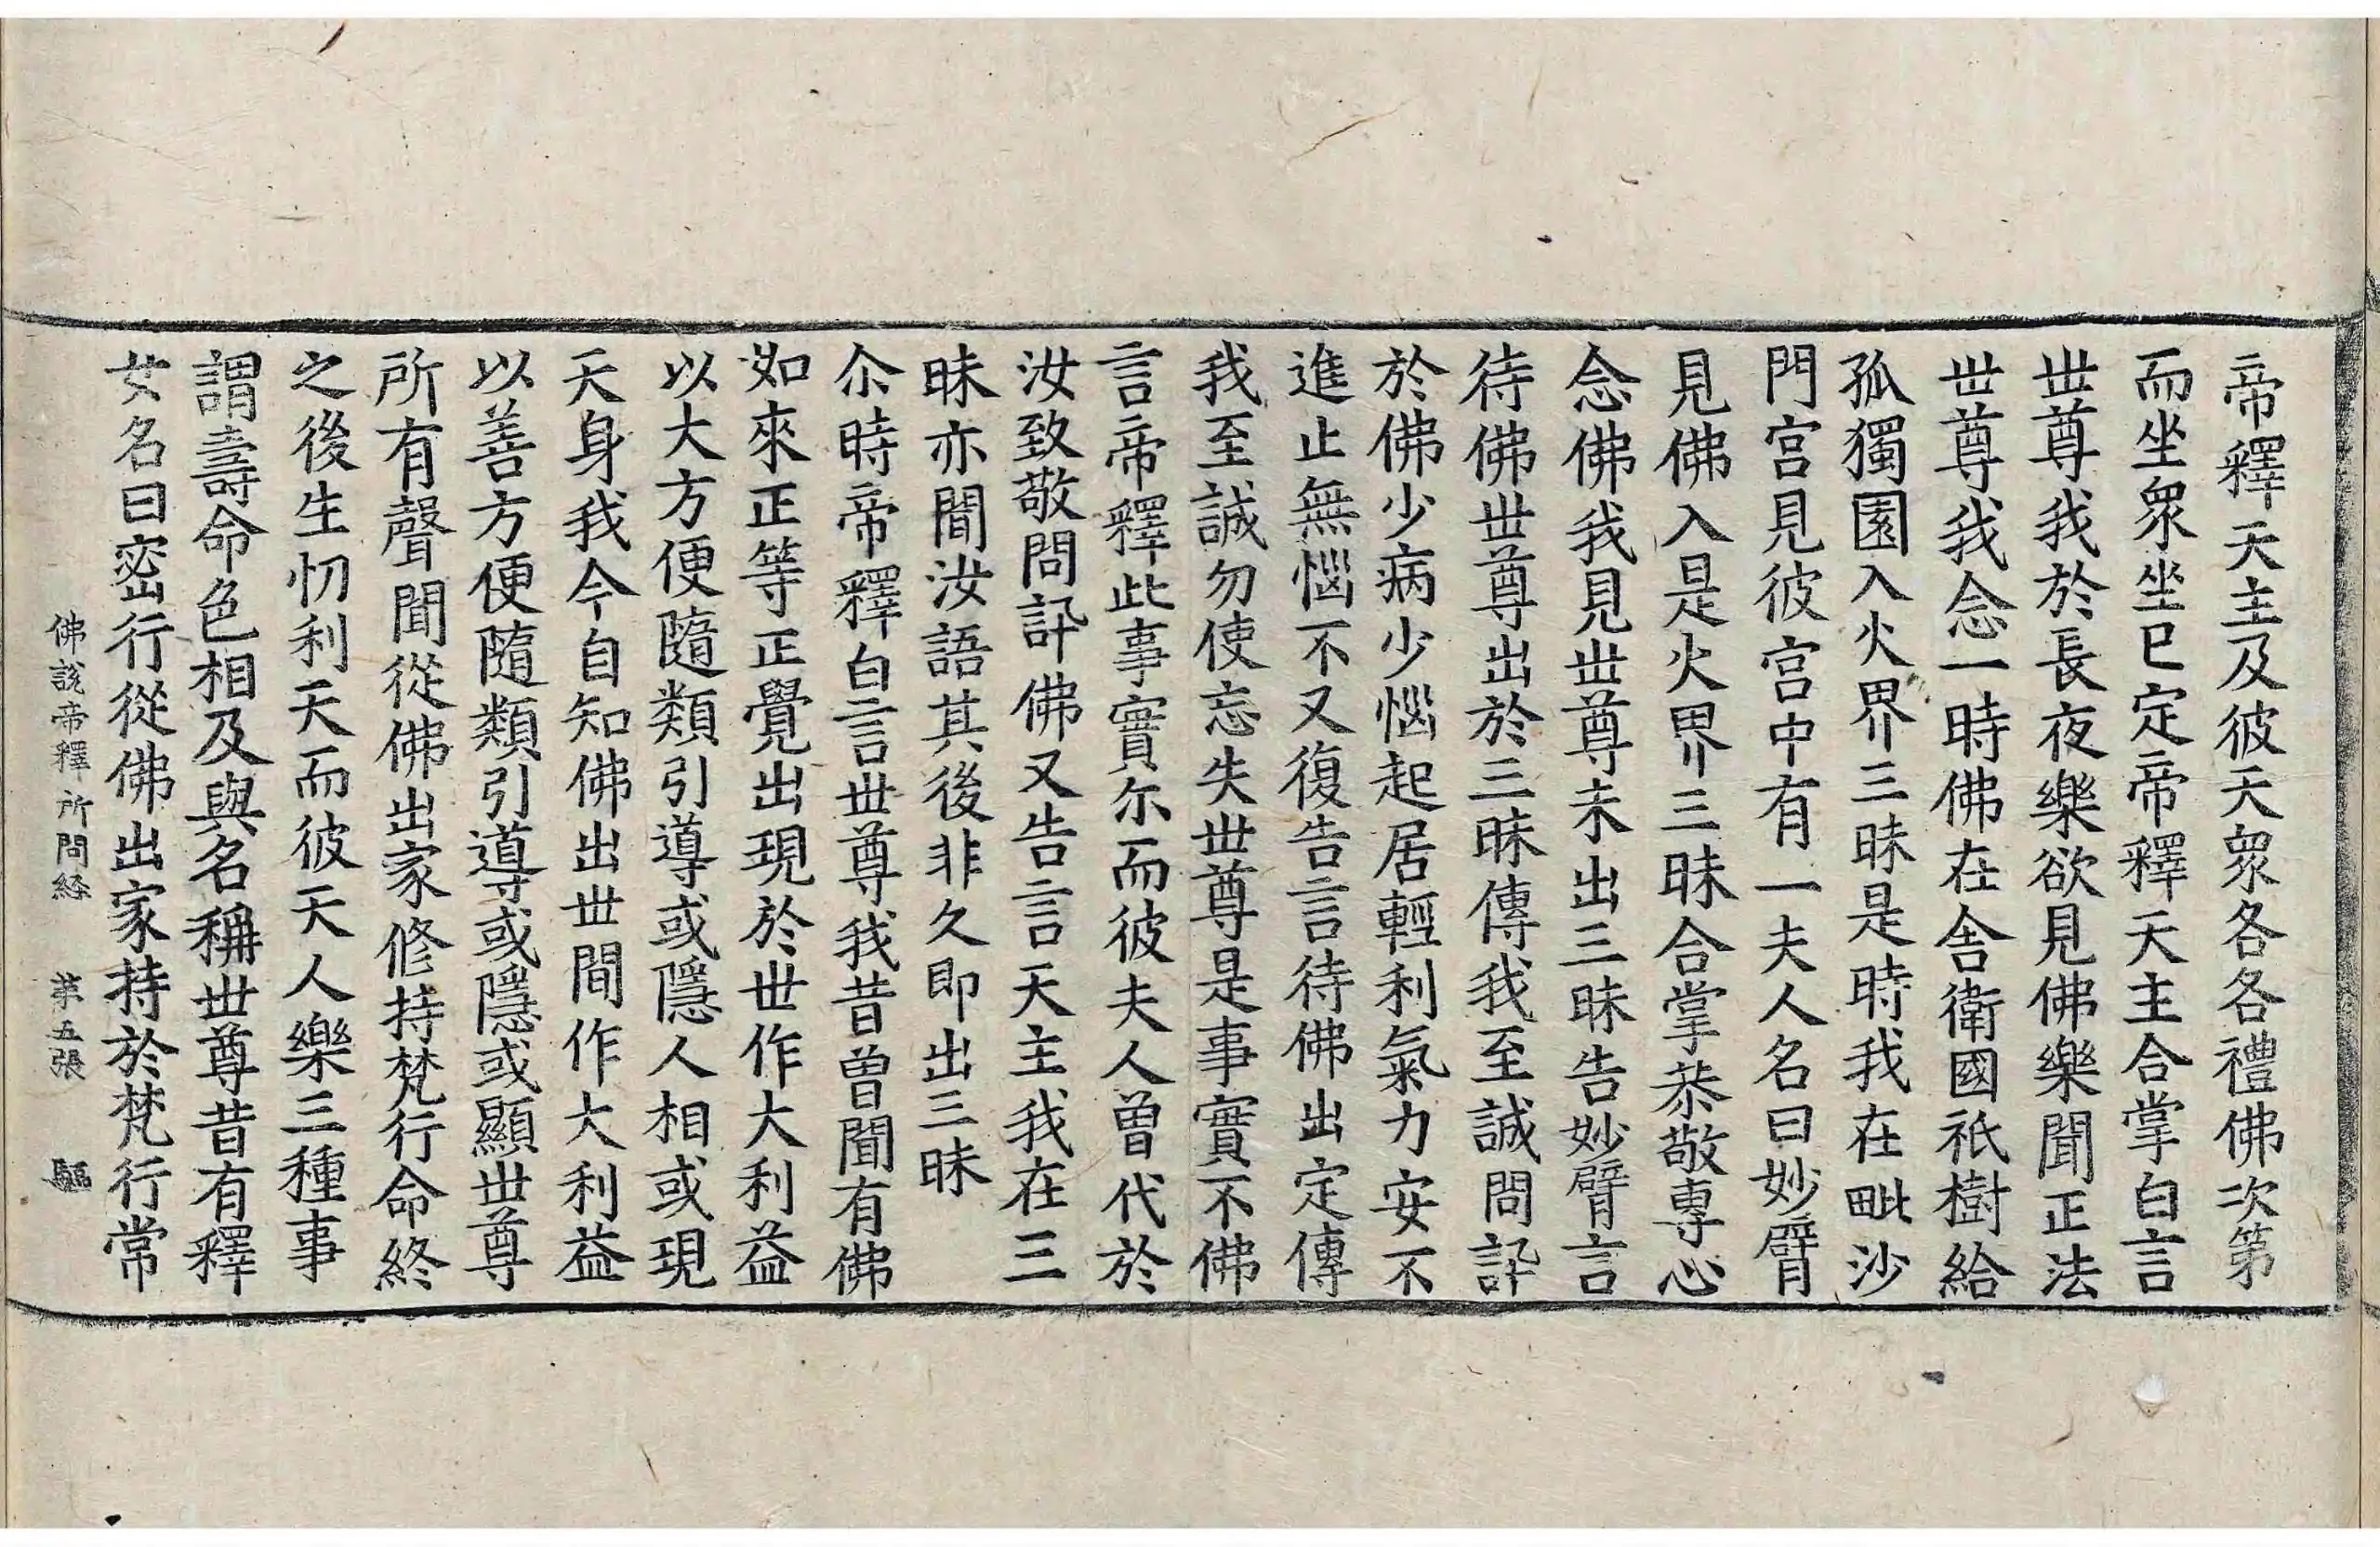 帝釋天主及彼天衆各各禮佛次第
而坐衆坐已定帝釋天主合掌白言
丗尊我於長夜樂欲見佛樂聞正法
丗尊我念一時佛在舎衛國祇樹給
孤獨園入火界三昧是時我在毗沙
門宮見彼宮中有一夫人名曰妙臂
見佛入是火界三昧合掌恭敬專心
念佛我見丗尊未出三昧告妙臂言
待佛丗尊出於三昧傳我至誠問訊
於佛少病少惱起居輕利氣力安不
進止無惱不又復告言待佛出定傳
我至誠勿使忘失丗尊是事實不佛
言帝釋此事實尔而彼夫人曾代於
汝致敬問訊佛又告言天主我在三
昧亦聞汝語其後非久即出三昧
尒時帝釋白言丗尊我昔曾聞有佛
如來正等正覺出現於世作大利益
以大方便隨類引導或隱人相或現
天身我今自知佛出丗間作大利益
以善方便隨類引導或隱或顯丗尊
所有聲聞從佛出家修持梵行命終
之後生忉利天而彼天人樂三種事
謂壽命色相及與名稱丗尊昔有釋
女名曰密行從佛出家持於梵行常
佛說帝釋所問経 苐五張 驅